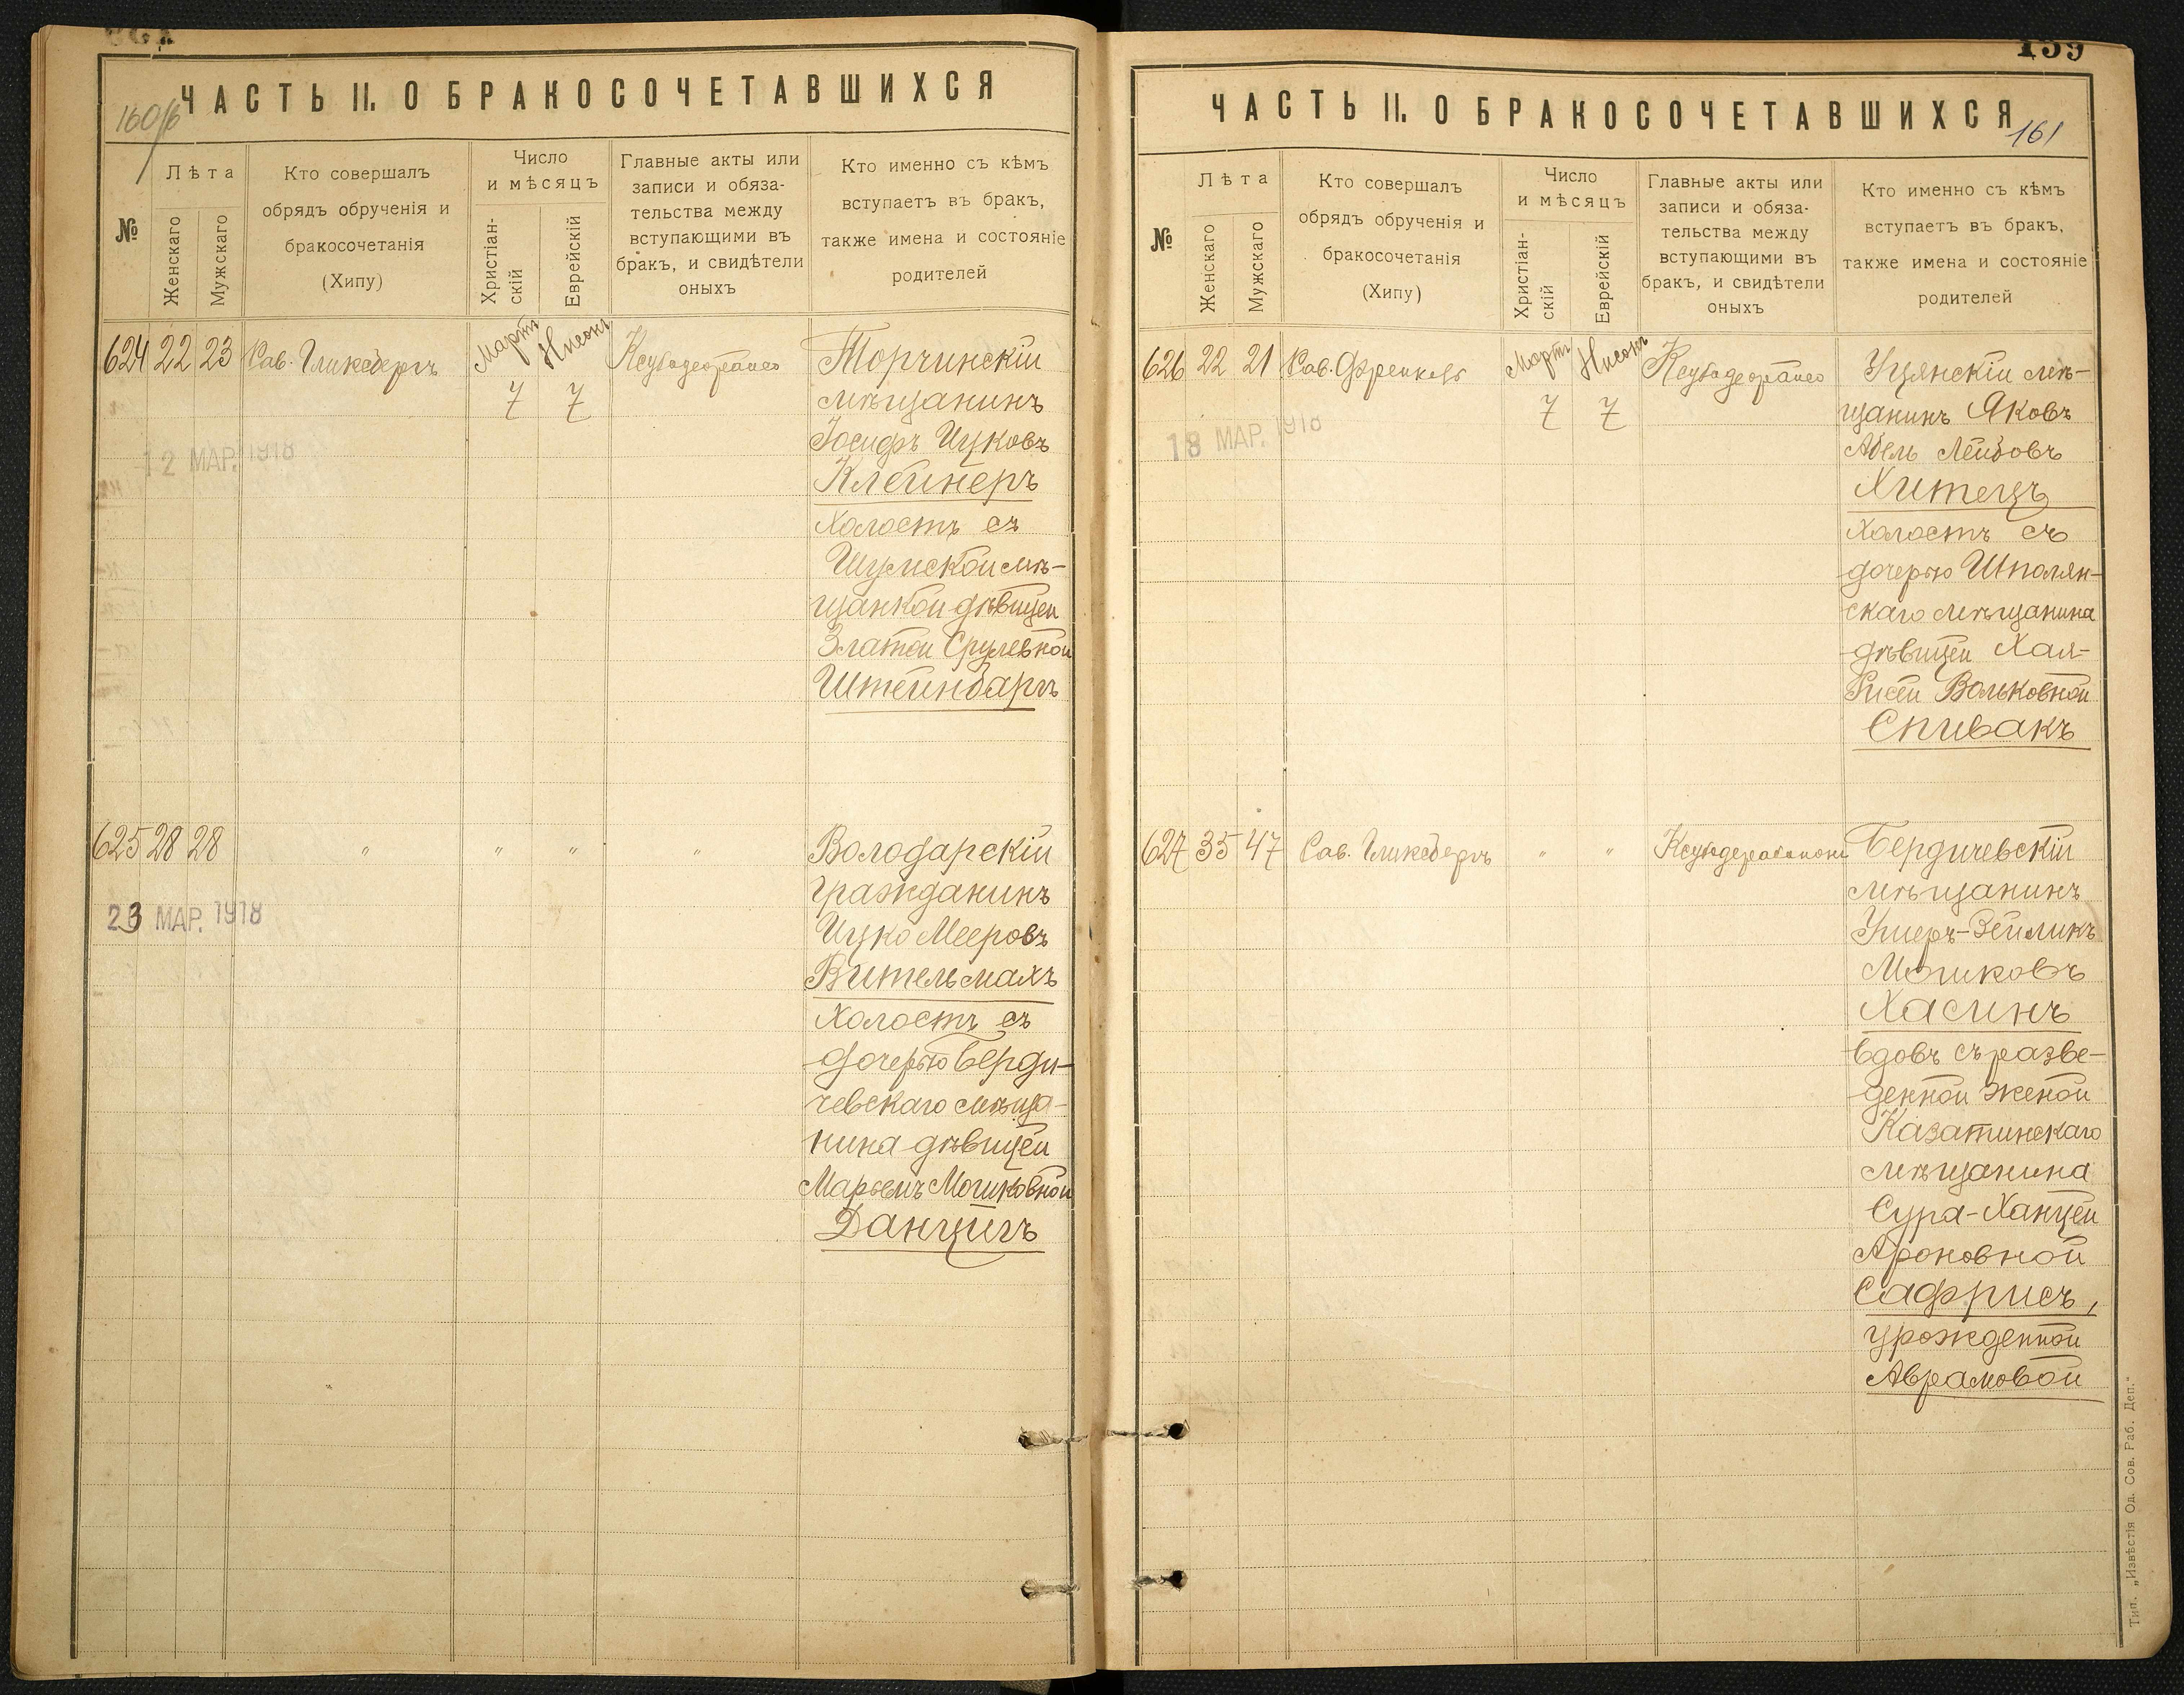 ЧАСТЬ II. О БРАКОСОЧЕТАВШИХСЯ
160/б
№
Лѣта
Женскаго
Мужскаго
Кто совершалъ
обрядъ обрученія и
бракосочетанія
(Хипу)
Число
и мѣсяцъ
Христіан-
скій
Еврейскій
Главные акты или
записи и обяза-
тельства между
вступающими въ
бракъ, и свидѣтели
оныхъ
Кто именно съ кѣмъ
вступаетъ въ бракъ,
также имена и состояніе
родителей
624 22 23 Рав. Гликсбергъ
Мартъ Нисонъ
7 7
12 МАР. 1918
Торчинскій
мѣщанинъ
Іосифъ Ицковъ
Клейнеръ
холостъ съ
Шумской мѣ-
щанкой дѣвицей
Златой Срулевной
Штейнбаргъ
625 28 28 " " " "
23 МАР. 1918
Володарскій
гражданинъ
Ицко Мееровъ
Вительмахъ
холостъ съ
дочерью Берди-
чевскаго мѣща-
нина дѣвицей
Марьемъ Мошковной
Данцигъ
159
ЧАСТЬ II. О БРАКОСОЧЕТАВШИХСЯ
161
№
Лѣта
Женскаго
Мужскаго
Кто совершалъ
обрядъ обрученія и
бракосочетанія
(Хипу)
Число
и мѣсяцъ
Христіан-
скій
Еврейскій
Главные акты или
записи и обяза-
тельства между
вступающими въ
бракъ, и свидѣтели
оныхъ
Кто именно съ кѣмъ
вступаетъ въ бракъ,
также имена и состояніе
родителей
626 22 21 Рав. Френкель
Мартъ Нисонъ
7 7
18 МАР. 1918
Уцянскій мѣ-
щанинъ Яковъ
Абель Лейбовъ
Хитецъ
холостъ съ
дочерью Шполян-
скаго мѣщанина
дѣвицей Хая-
Рисей Вольковной
Спивакъ
627 35 47 Рав. Гликсбергъ " "
Бердичевскій
мѣщанинъ
Ушеръ-Зейликъ
Мошковъ
Хасинъ
вдовъ съ разве-
денной женой
Казатинскаго
мѣщанина
Сура-Ханцей
Ароновной
Сафрисъ,
урожденной
Аврамовой
Тип. „Извѣстія Од. Сов. Раб. Деп."